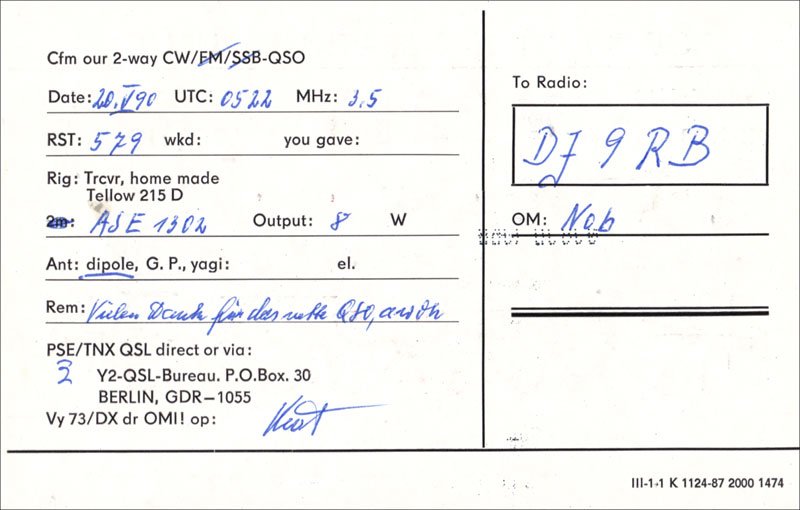 Cfm our 2-way CW/FM/SSB-QSO
Date: 20.V.90 UTC: 0522 MHz: 3.5
RST: 579 wkd: you gave:
Rig: Trcvr, home made
Tellow 215 D
2m: ASE 1302 Output: 8 W
Ant: dipole, G. P., yagi: el.
Rem: Vielen Dank für das nette QSO, awdh
PSE/TNX QSL direct or via:
Y2-QSL-Bureau. P.O.Box. 30
BERLIN, GDR–1055
Vy 73/DX dr OM! op: Kurt
To Radio:
DJ9RB
OM: Nob
III-1-1 K 1124-87 2000 1474